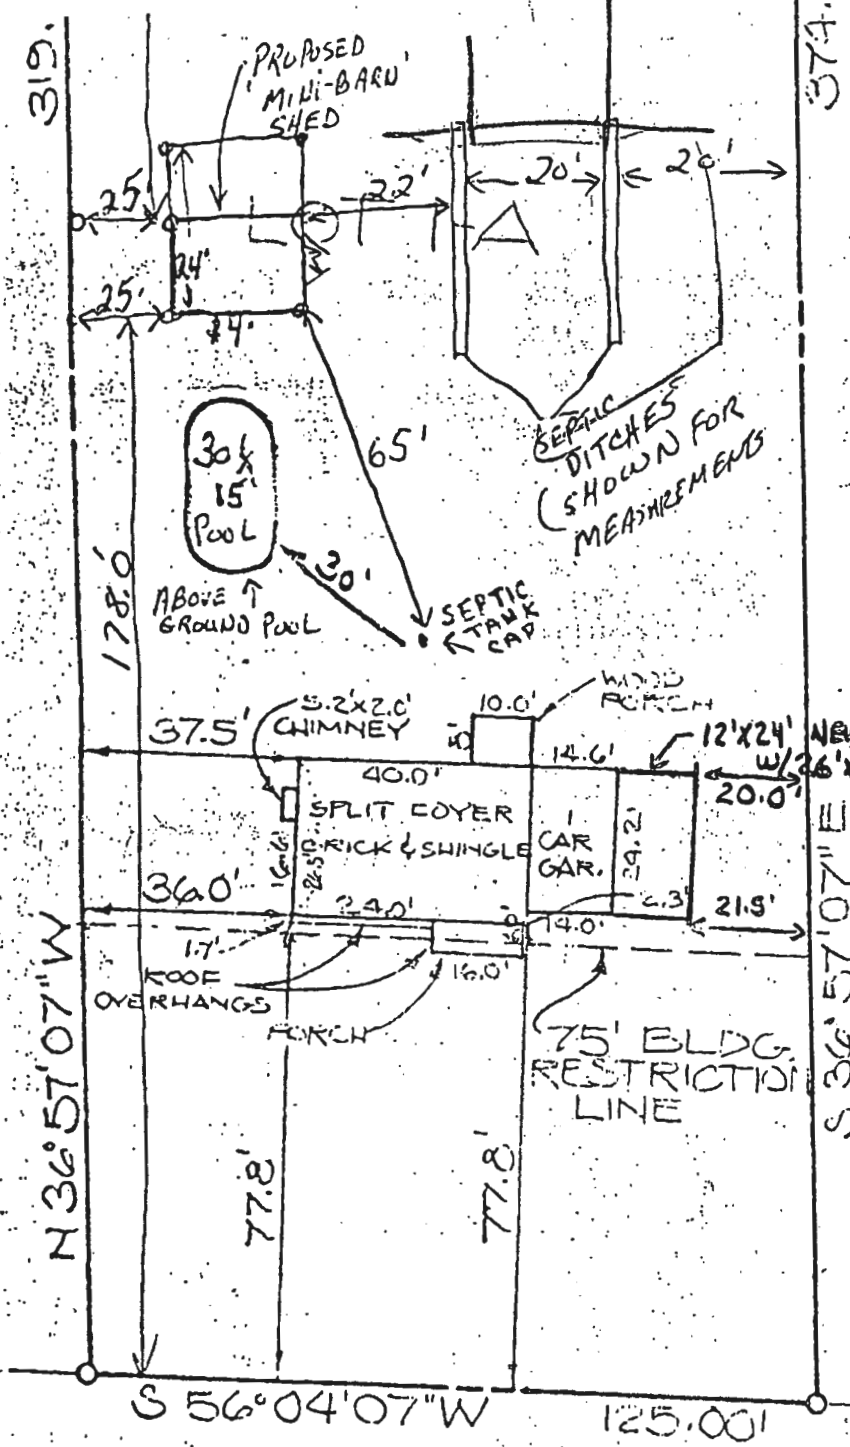 319.
374.
'PROPOSED
'MINI-BARN'
SHED
25'
22'
20'
20'
24'
25'
24'
SEPTIC
DITCHES
SHOWN FOR
MEASUREMENTS
65'
30' x
15'
POOL
30'
ABOVE
GROUND POOL
SEPTIC
TANK
CAP
178.0'
WOOD
PORCH
10.0'
CHIMNEY
37.5'
14.6'
12'X24'
20.0'
40.0'
SPLIT FOYER
BRICK & SHINGLE
1
CAR
GAR.
24.2'
36.0'
24.0'
14.0'
21.5'
1.7'
16.0'
ROOF
OVERHANGS
PORCH
75' BLDG.
RESTRICTION
LINE
N 36° 57' 07" W
S 36° 57' 07" E
77.8'
77.8'
S 56° 04' 07" W
125.00'